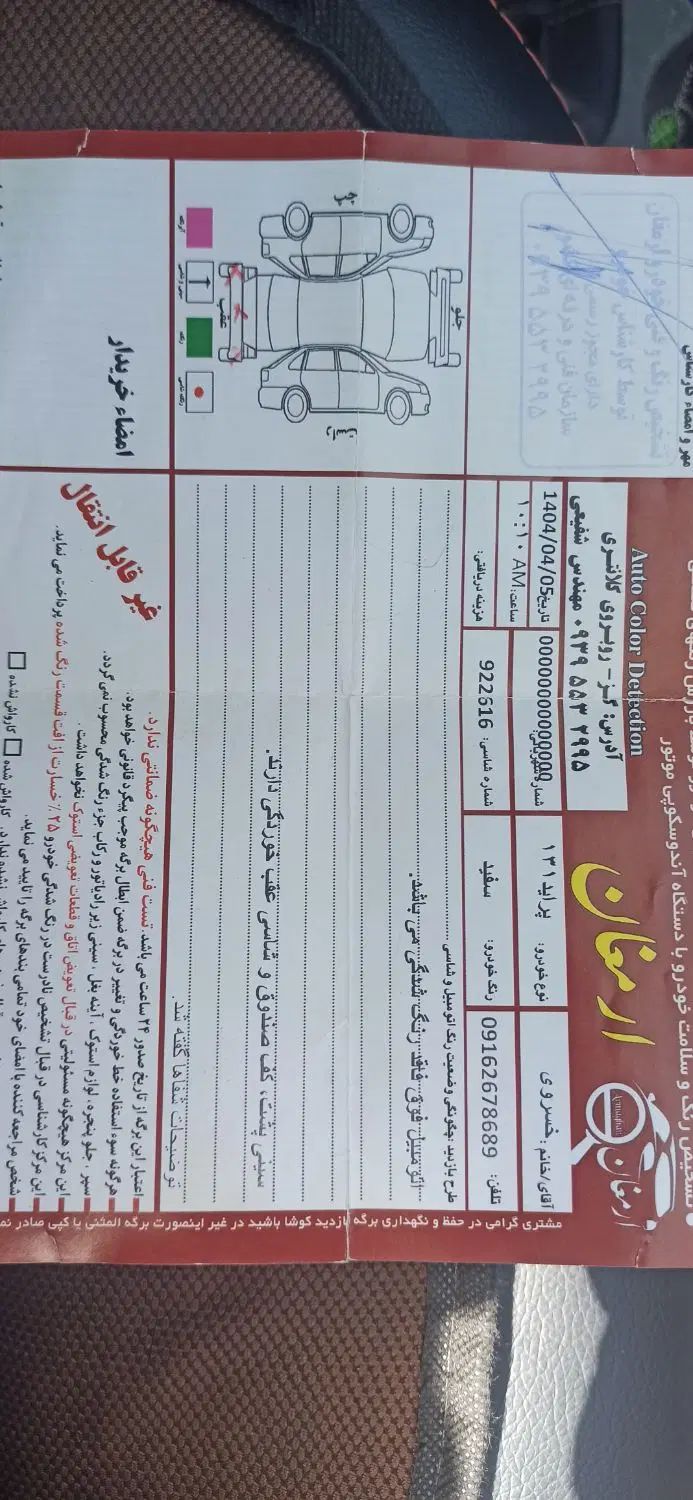 تشخیص رنگ و سلامت خودرو با دستگاه آندوسکوپی موتور
ارمغان
Armaghan
ارمغان
Auto Color Detection
آدرس: گز - روبروی کلانتری
۰۹۳۹ ۵۵۳ ۲۹۹۵ مهندس شفیعی
مهر و امضاء کارشناس
تشخیص رنگ و فنی خودرو ارمغان
توسط کارشناس
سازمان فنی و حرفه ای
۰۹۳۹ ۵۵۳ ۲۹۹۵
آقای/خانم: خسروی
نوع خودرو: پراید ۱۳۱
شماره 0000000000000
تاریخ: 1404/04/05
ساعت: ۱۰:۱۰ AM
تلفن: 09162678689
رنگ خودرو: سفید
شماره شاسی: 922616
هزینه دریافتی:
طرح بازدید :چگونگی وضعیت رنگ اتومبیل و شاسی
اتومبیل فوق فاقد رنگ شدگی می باشد.
سینی پشت، کف صندوق و شاسی عقب خوردگی دارند.
توضیحات شفاها گفته شد.
جلو
عقب
رنگ
امضاء خریدار
غیر قابل انتقال
اعتبار این برگه از تاریخ صدور ۲۴ ساعت می باشد. تست فنی هیچگونه ضمانتی ندارد.
هرگونه سوء استفاده خط خوردگی و تغییر در برگه ضمن ابطال برگه موجب پیگرد قانونی خواهد بود.
سپر ، جلو پنجره، لوازم استوک ، آینه بغل ، سینی زیر رادیاتور و رکاب جزء رنگ شدگی محسوب نمی گردد.
این مرکز هیچگونه مسئولیتی در قبال تعویض اتاق و قطعات تعویضی استوک نخواهد داشت .
این مرکز کارشناسی در قبال تشخیص نادرست در رنگ شدگی خودرو ۲۵٪ خسارت از افت قسمت رنگ شده پرداخت می نماید.
شخص مراجعه کننده با امضای خود تمامی بندهای برگه را تایید می نماید.
کارواش شده
کارواش نشده
مشتری گرامی در حفظ و نگهداری برگه بازدید کوشا باشید در غیر اینصورت برگه المثنی یا کپی صادر